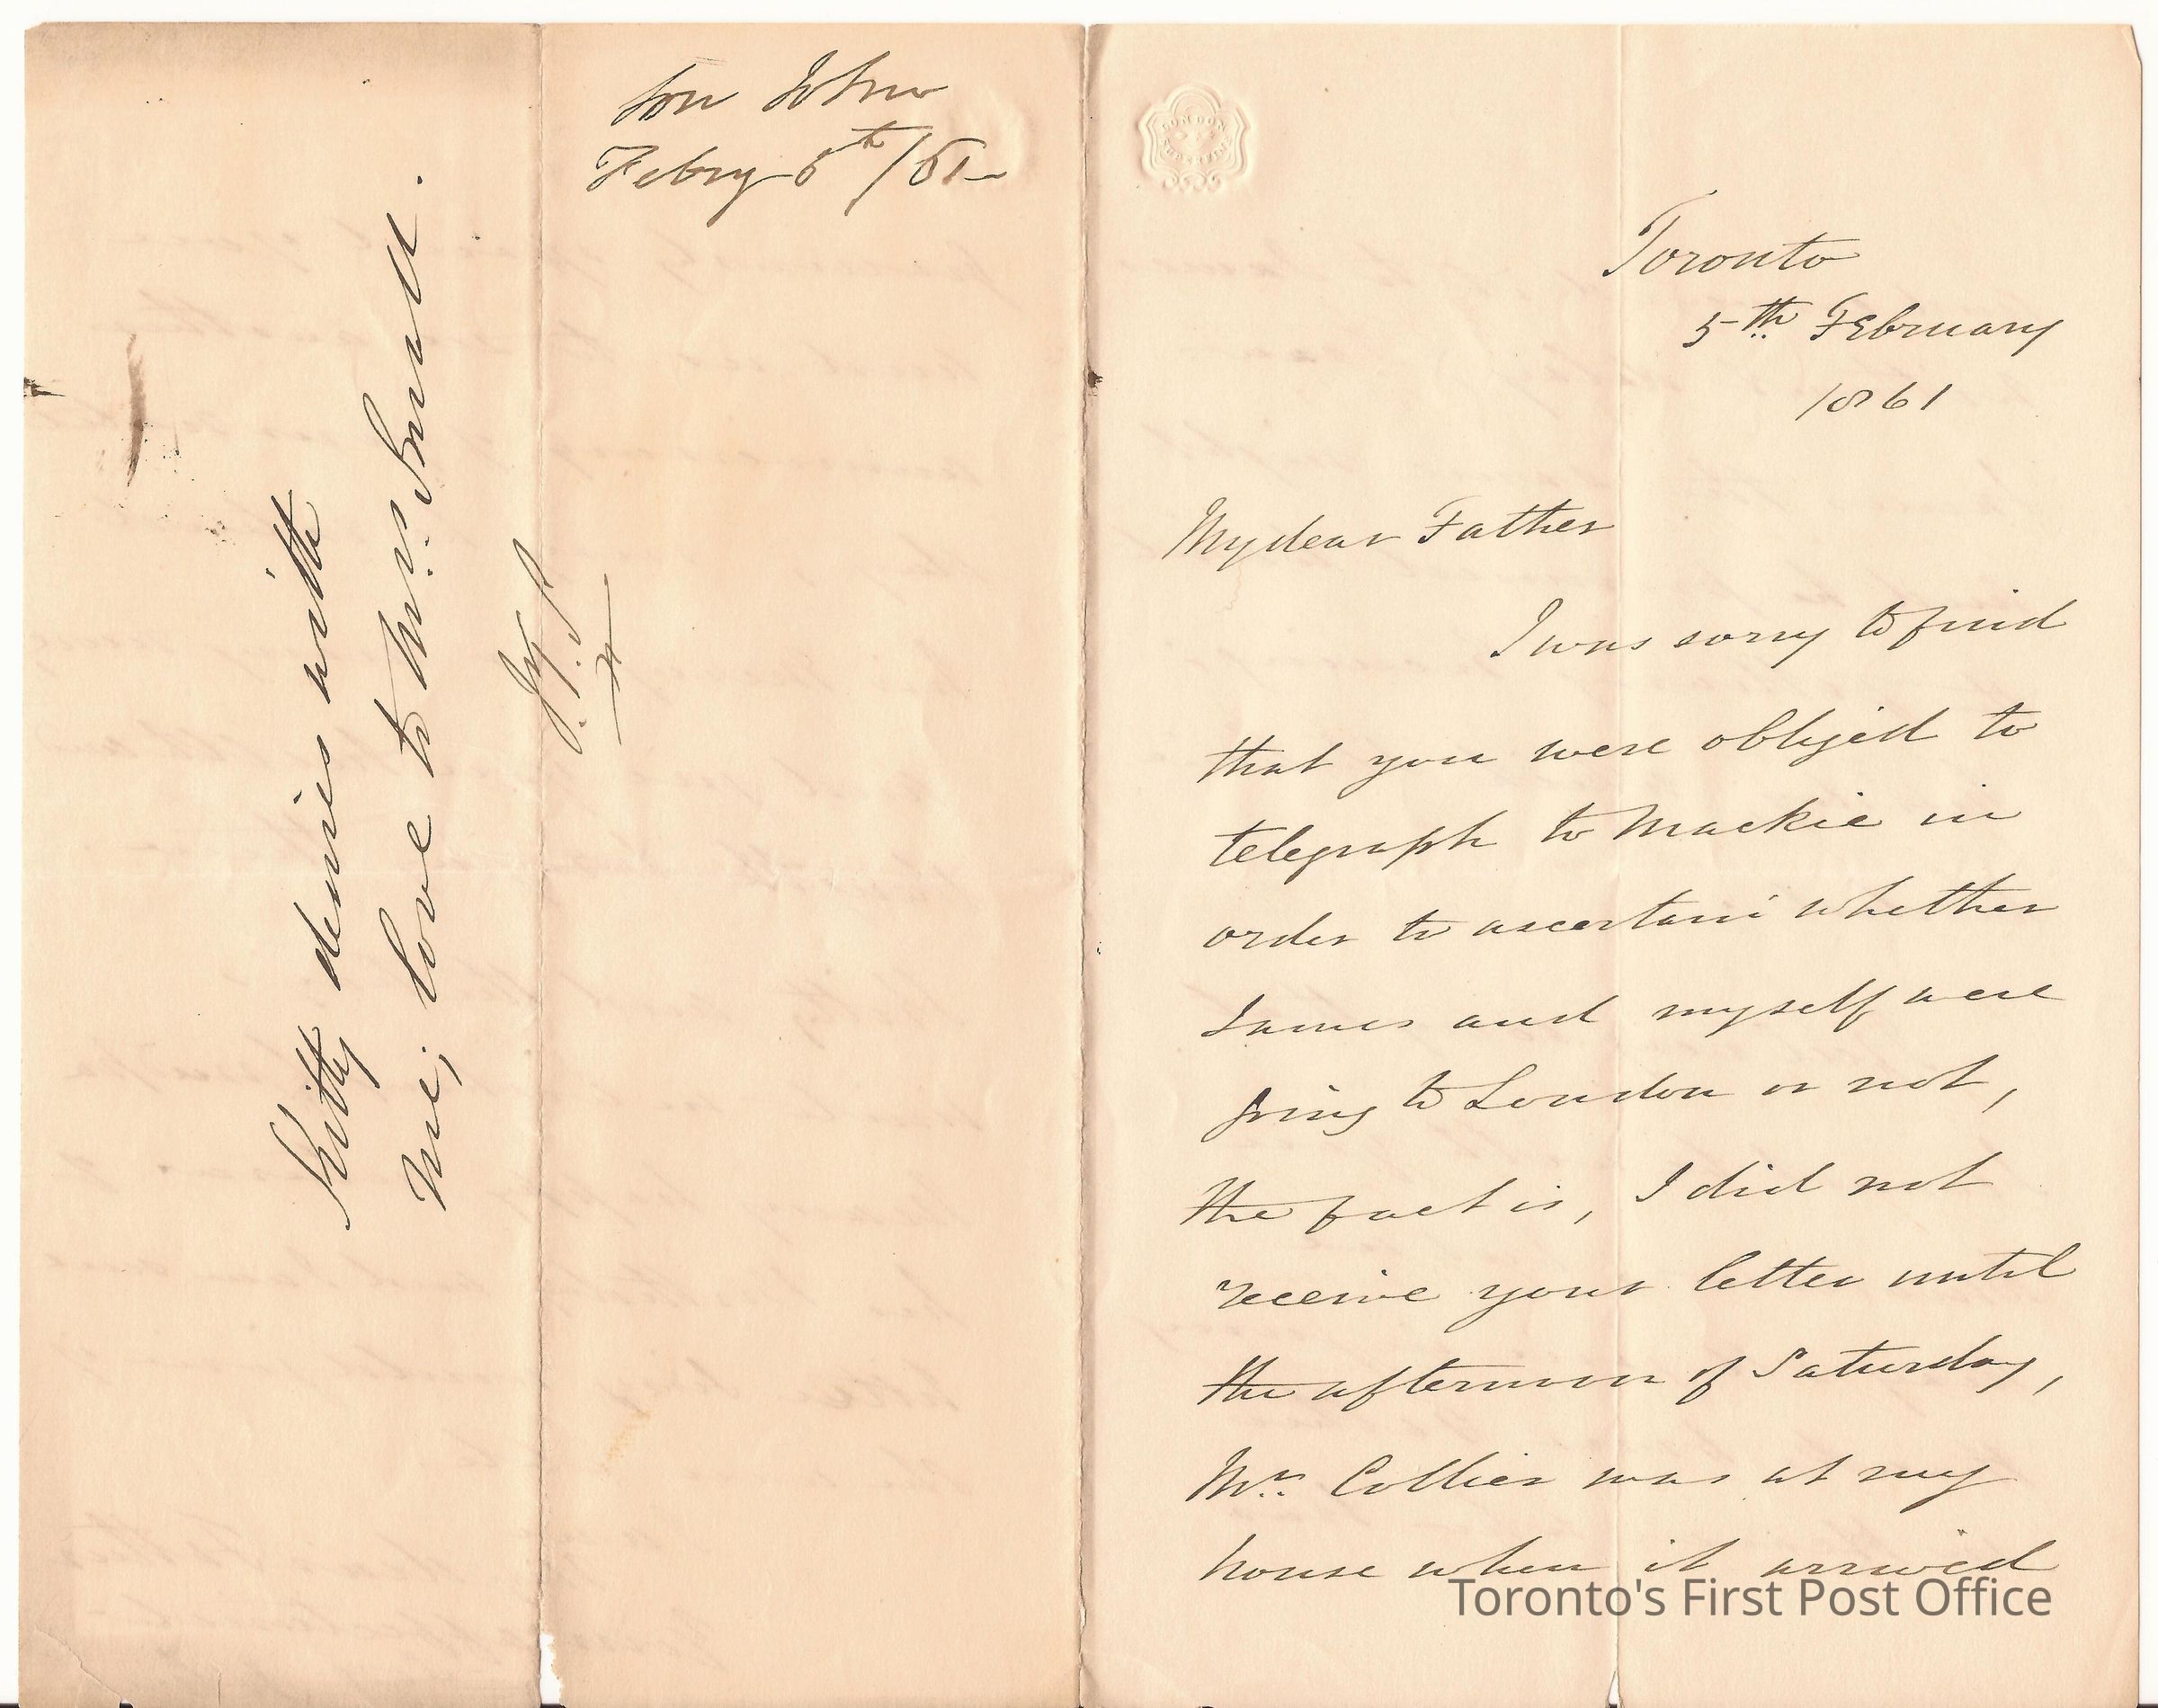 Son John
Febry 5th/61
Toronto
5th February
1861
My dear Father
I was sorry to find
that you were obliged to
telegraph to Mackie in
order to ascertain whether
James and myself were
going to London or not,
the fact is, I did not
receive your letter until
the afternoon of Saturday,
Mrs. Collier was at my
house when it arrived
Kitty desires with
me, love to Mrs. Small.
J.
Toronto's First Post Office